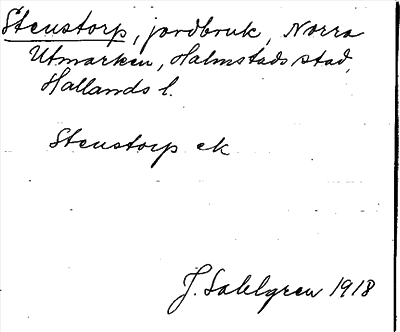 Stenstorp, jordbruk, Norra
Utmarken, Halmstads stad,
Hallands l.
Stenstorp ek
J. Sahlgren 1918